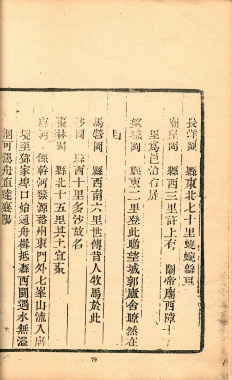 長洋岡　縣東北七十里蜿蜒縣亘
南至岡　縣西三里許上有關帝廟西障
里爲邑治右屏
葉城岡　縣東二里登此聯望城郭廬舍瞭然在
目
馬營岡　縣西南六里世傳昔人牧馬於此
沙岡　縣西十里多沙故名
棗林岡　縣北十五里其土宜棗
唐河　係幹河發源裕州東門外七峯山流入唐
境至郭家埠口始通舟楫抵縣西關遇水無溢
涸可爲舟直達襄陽
79